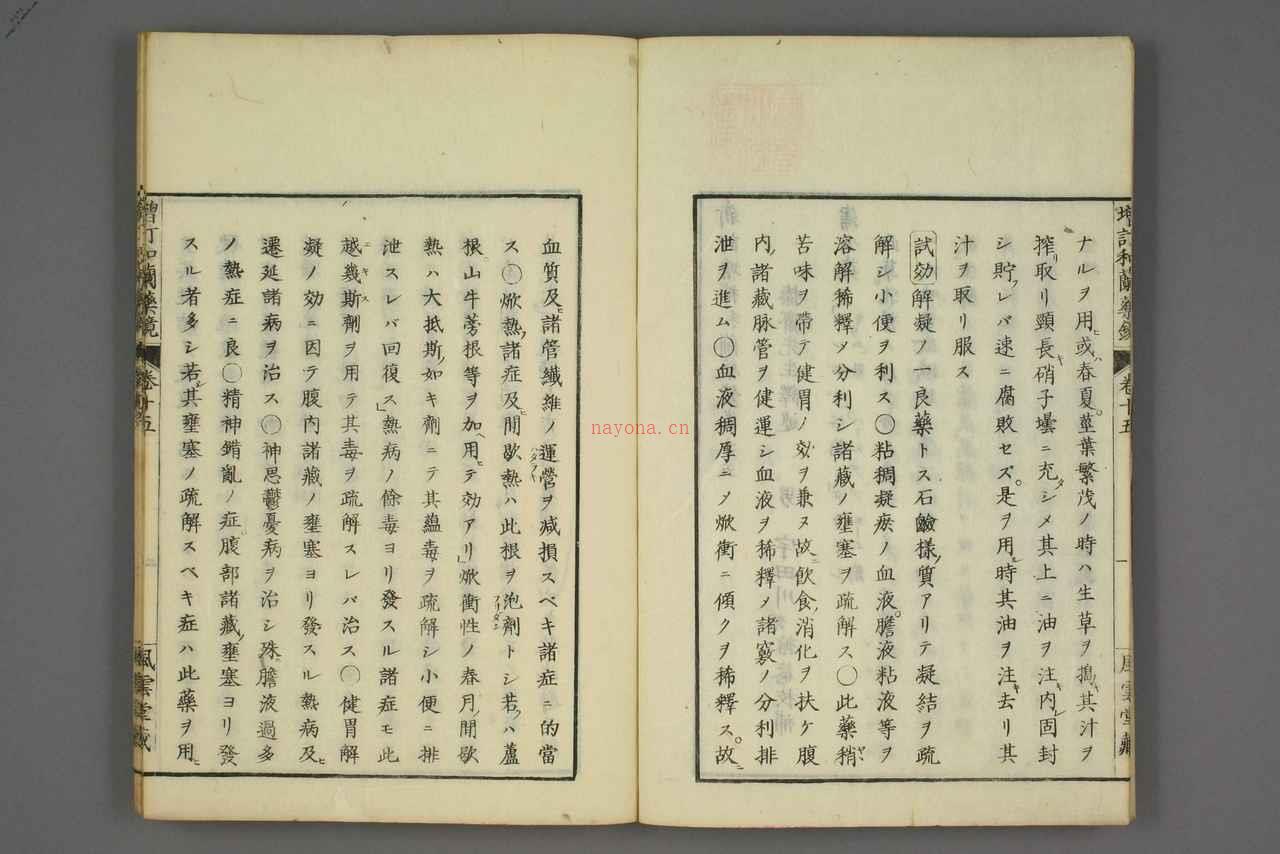 ナルヲ用ヒ或ハ春夏莖葉繁茂ノ時ハ生草ヲ搗キ其汁ヲ
搾リ取リ頸長キ硝子壜ニ充タシメ其上ニ油ヲ注キ内レ固封
シ貯フレバ速ニ腐敗セズ是ヲ用ル時其油ヲ注キ去リ其
汁ヲ取リ服ス
試効 解凝ノ一良藥トス石鹼樣ノ質アリテ凝結ヲ疏
解シ小便ヲ利ス○粘稠凝瘀ノ血液膽液粘液等ヲ
溶解稀釋メ分利シ諸藏ノ壅塞ヲ疏解ス○此藥稍ヤ
苦味ヲ帶テ健胃ノ効ヲ兼ヌ故ニ飲食ノ消化ヲ扶ケ腹
内ノ諸藏脉管ヲ健運シ血液ヲ稀釋メ諸竅ノ分利排
泄ヲ進ム○血液稠厚ニメ焮衝ニ傾クヲ稀釋ス故ニ
増訂和蘭藥鏡 卷十五 一 風雲堂藏
血質及ヒ諸管纖維ノ運營ヲ減損スベキ諸症ニ的當
ス○焮熱ノ諸症及ヒ間歇熱ハ此根ヲ泡劑トシ若クハ蘆
根山牛蒡根等ヲ加ヘ用ヒテ効アリ焮衝性ノ春月ノ間歇
熱ハ大抵斯ノ如キ劑ニテ其蘊毒ヲ疏解シ小便ニ排
泄スレバ回復ス熱病ノ餘毒ヨリ發スル諸症モ此
越幾斯劑ヲ用テ其毒ヲ疏解スレバ治ス○健胃解
凝ノ効ニ因テ腹内諸藏ノ壅塞ヨリ發スル熱病及ヒ
遷延諸病ヲ治ス○神思鬱憂病ヲ治シ殊ニ膽液過多
ノ熱症ニ良○精神錯亂ノ症腹部諸藏ノ壅塞ヨリ發
スル者多シ若シ其壅塞ノ疏解スベキ症ハ此藥ヲ用ヒ
増訂和蘭藥鏡 卷十五 風雲堂藏
nayona.cn